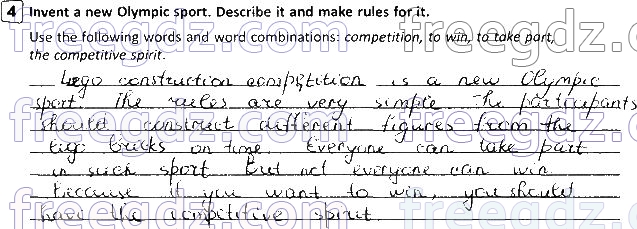 4 Invent a new Olympic sport. Describe it and make rules for it.
Use the following words and word combinations: competition, to win, to take part,
the competitive spirit.
Lego construction competition is a new Olympic
sport. The rules are very simple. The participants
should construct different figures from the
lego bricks on time. Everyone can take part
in such sport. But not everyone can win
because if you want to win, you should
have the competitive spirit.
freegdz.com